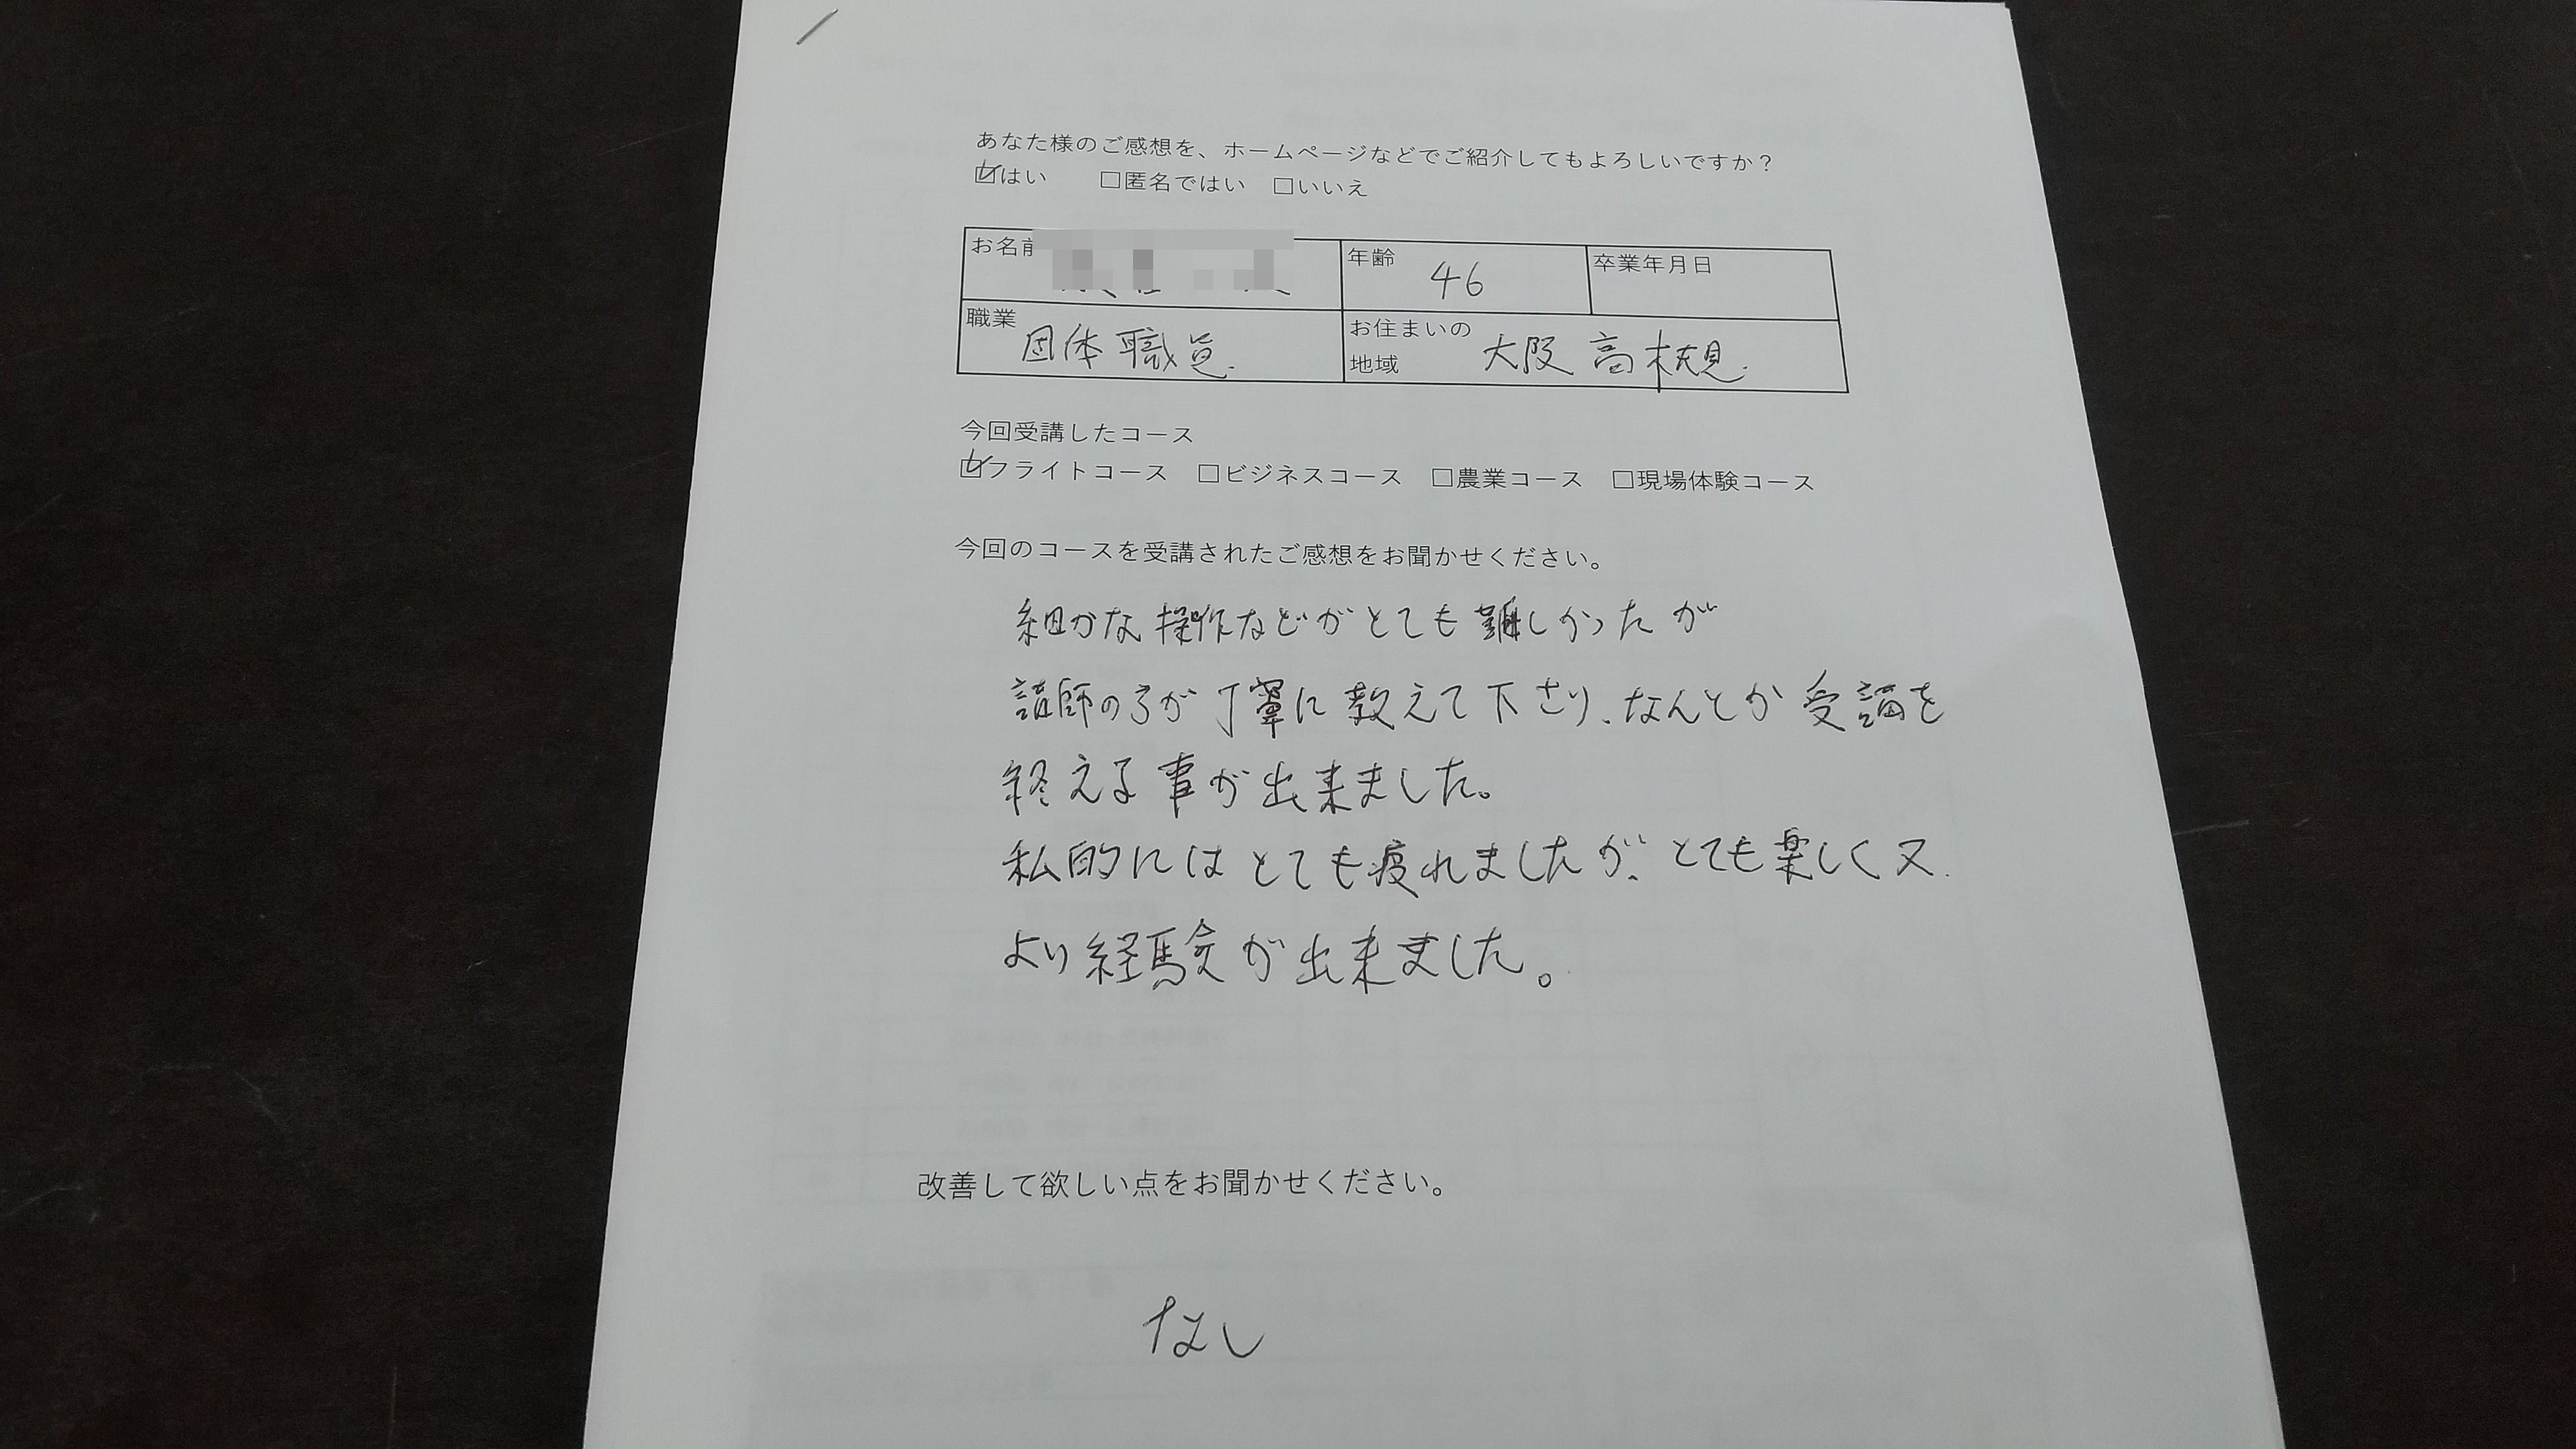 あなた様のご感想を、ホームページなどでご紹介してもよろしいですか？
☑はい　□匿名ではい　□いいえ
お名前
年齢 46
卒業年月日
職業 団体職員.
お住まいの地域 大阪 高槻.
今回受講したコース
☑フライトコース　□ビジネスコース　□農業コース　□現場体験コース
今回のコースを受講されたご感想をお聞かせください。
細かな操作などがとても難しかったが
講師の方が丁寧に教えて下さり、なんとか受講を
終える事が出来ました。
私的にはとても疲れましたが、とても楽しく又
より経験が出来ました。
改善して欲しい点をお聞かせください。
なし